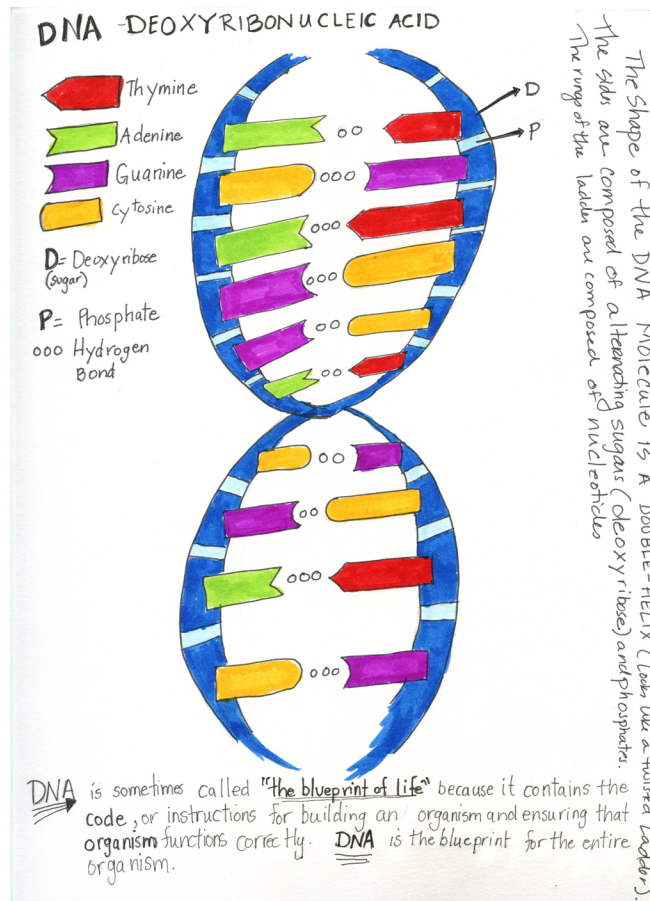 DNA - DEOXYRIBONUCLEIC ACID
Thymine
Adenine
Guanine
Cytosine
D= Deoxyribose
(sugar)
P= Phosphate
ooo Hydrogen
Bond
D
P
The Shape of the DNA MOLECULE IS A DOUBLE-HELIX (Looks like a twisted Ladder).
The sides are composed of alternating sugars (deoxyribose) and phosphates.
The rungs of the ladder are composed of nucleotides
DNA is sometimes called "the blueprint of life" because it contains the
code, or instructions for building an organism and ensuring that
organism functions correctly. DNA is the blueprint for the entire
organism.